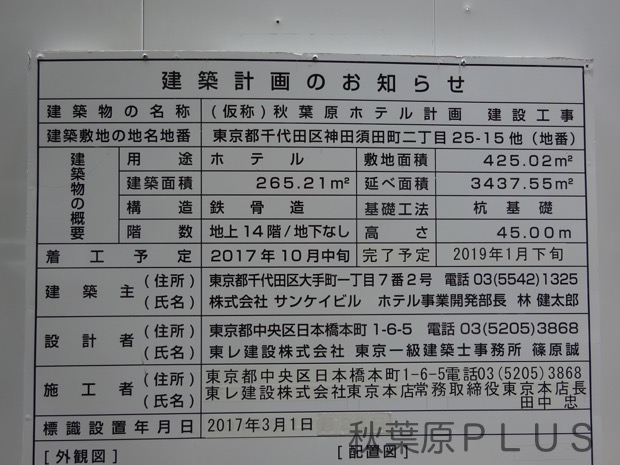 建築計画のお知らせ
建築物の名称 (仮称)秋葉原ホテル計画 建設工事
建築敷地の地名地番 東京都千代田区神田須田町二丁目25-15他(地番)
建築物の概要 用途 ホテル 敷地面積 425.02m²
建築面積 265.21m² 延べ面積 3437.55m²
構造 鉄骨造 基礎工法 杭基礎
階数 地上14階/地下なし 高さ 45.00m
着工予定 2017年10月中旬 完了予定 2019年1月下旬
建築主 (住所) 東京都千代田区大手町一丁目7番2号 電話03(5542)1325
(氏名) 株式会社 サンケイビル ホテル事業開発部長 林 健太郎
設計者 (住所) 東京都中央区日本橋本町1-6-5 電話03(5205)3868
(氏名) 東レ建設株式会社 東京一級建築士事務所 篠原誠
施工者 (住所) 東京都中央区日本橋本町1-6-5電話03(5205)3868
(氏名) 東レ建設株式会社東京本店常務取締役東京本店長
田中 忠
標識設置年月日 2017年3月1日
[外観図] [配置図]
秋葉原PLUS